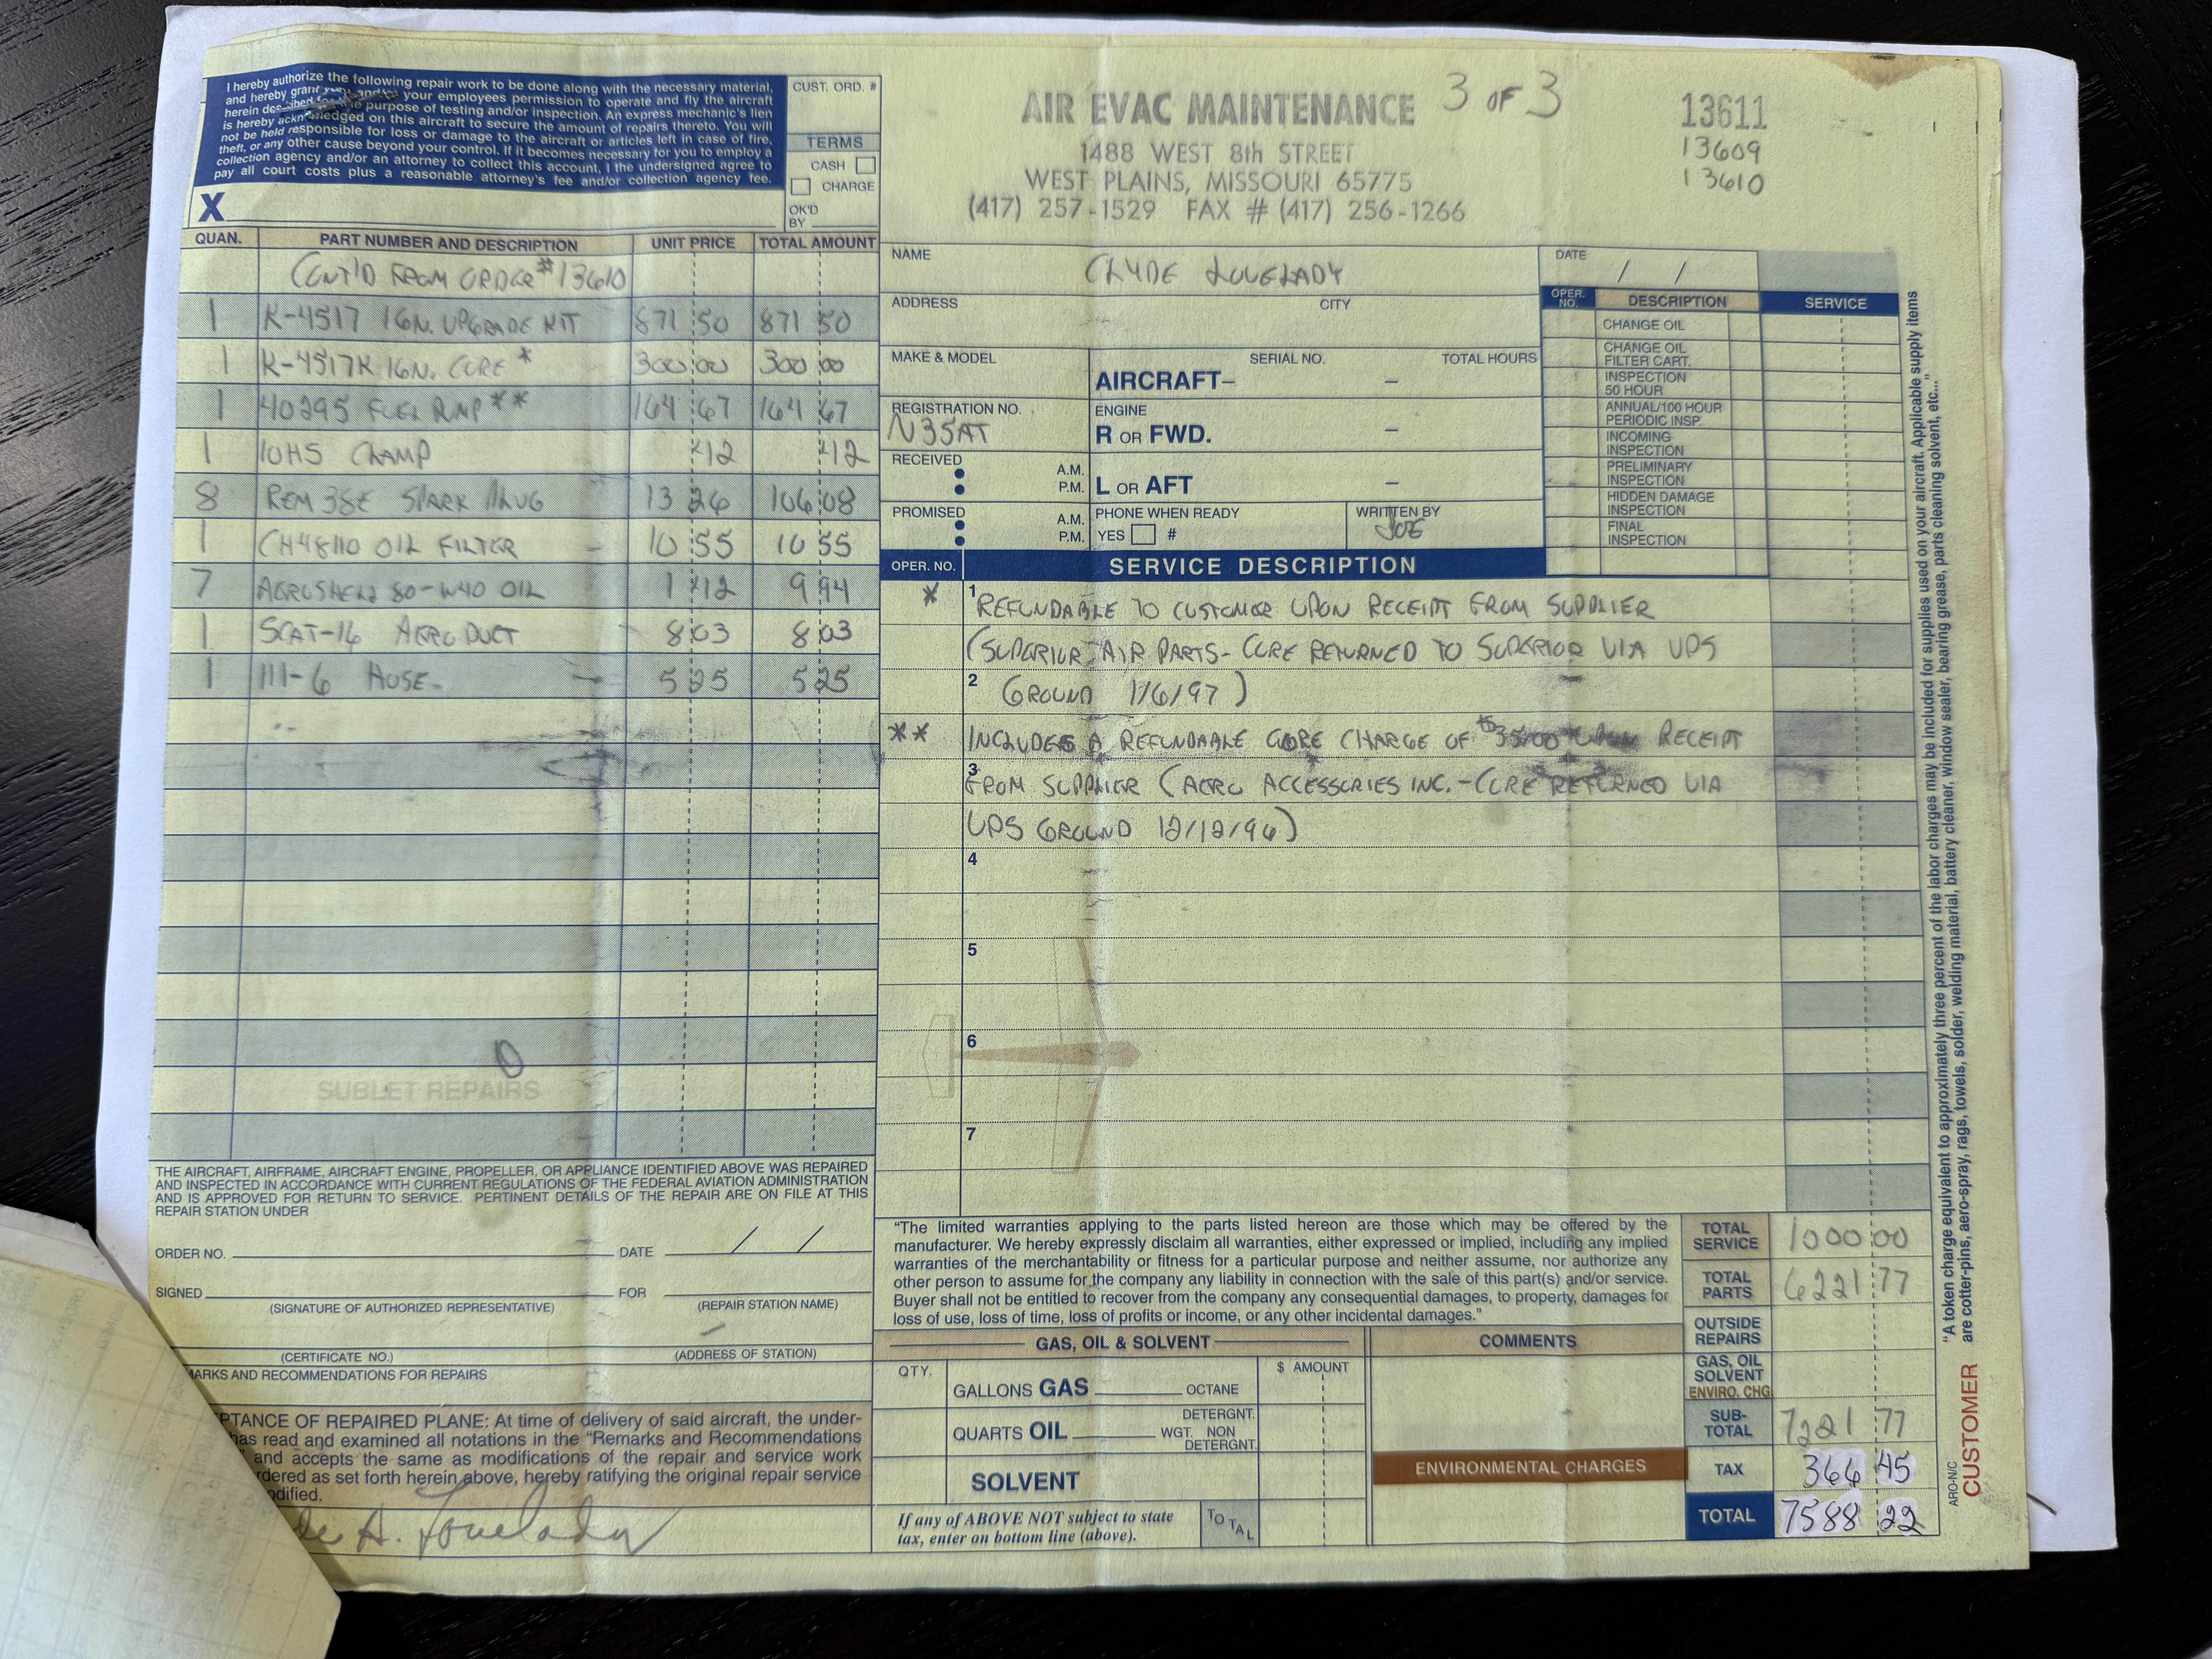 I hereby authorize the following repair work to be done along with the necessary material,
and hereby grant and/or your employees permission to operate and fly the aircraft
herein the purpose of testing and/or inspection. An express mechanic's lien
is hereby acknowledged on this aircraft to secure the amount of repairs thereto. You will
not be held responsible for loss or damage to the aircraft or articles left in case of fire,
theft, or any other cause beyond your control. If it becomes necessary for you to employ a
collection agency and/or an attorney to collect this account, I the undersigned agree to
pay all court costs plus a reasonable attorney's fee and/or collection agency fee.
X
CUST. ORD. #
TERMS
CASH
CHARGE
OK'D
BY
AIR EVAC MAINTENANCE 3 OF 3
1488 WEST 8th STREET
WEST PLAINS, MISSOURI 65775
(417) 257-1529 FAX # (417) 256-1266
13611
13609
13610
QUAN. PART NUMBER AND DESCRIPTION UNIT PRICE TOTAL AMOUNT
CONT'D FROM ORDER #13610
1 K-4517 IGN. UPGRADE KIT 871 50 871 50
1 K-4517K IGN. CORE * 300 00 300 00
1 40295 FUEL PUMP ** 164 67 164 67
1 10HS CLAMP 42 42
8 REM 38E SPARK PLUG 13 26 106 08
1 CH48110 OIL FILTER 10 55 10 55
7 AEROSHELL 80-W40 OIL 1 42 9 94
1 SCAT-16 AERODUCT 8 03 8 03
1 111-6 HOSE 5 25 5 25
SUBLET REPAIRS
NAME CLYDE LOVELADY
DATE / /
ADDRESS CITY
MAKE & MODEL SERIAL NO. TOTAL HOURS
AIRCRAFT– –
REGISTRATION NO. N35AT
ENGINE
R OR FWD. –
RECEIVED A.M.
P.M.
L OR AFT –
PROMISED A.M.
P.M.
PHONE WHEN READY
YES #
WRITTEN BY
JOE
OPER. NO. DESCRIPTION SERVICE
CHANGE OIL
CHANGE OIL
FILTER CART.
INSPECTION
50 HOUR
ANNUAL/100 HOUR
PERIODIC INSP.
INCOMING
INSPECTION
PRELIMINARY
INSPECTION
HIDDEN DAMAGE
INSPECTION
FINAL
INSPECTION
OPER. NO. SERVICE DESCRIPTION
* 1 REFUNDABLE TO CUSTOMER UPON RECEIPT FROM SUPPLIER
(SUPERIOR AIR PARTS - CORE RETURNED TO SUPERIOR VIA UPS
2 GROUND 1/6/97)
** INCLUDES A REFUNDABLE CORE CHARGE OF $35.00 UPON RECEIPT
3 FROM SUPPLIER (AERO ACCESSORIES INC. - CORE RETURNED VIA
UPS GROUND 12/12/96)
4
5
6
7
THE AIRCRAFT, AIRFRAME, AIRCRAFT ENGINE, PROPELLER, OR APPLIANCE IDENTIFIED ABOVE WAS REPAIRED
AND INSPECTED IN ACCORDANCE WITH CURRENT REGULATIONS OF THE FEDERAL AVIATION ADMINISTRATION
AND IS APPROVED FOR RETURN TO SERVICE. PERTINENT DETAILS OF THE REPAIR ARE ON FILE AT THIS
REPAIR STATION UNDER
ORDER NO. DATE / /
SIGNED FOR
(SIGNATURE OF AUTHORIZED REPRESENTATIVE) (REPAIR STATION NAME)
(CERTIFICATE NO.) (ADDRESS OF STATION)
ARKS AND RECOMMENDATIONS FOR REPAIRS
PTANCE OF REPAIRED PLANE: At time of delivery of said aircraft, the under-
has read and examined all notations in the "Remarks and Recommendations
and accepts the same as modifications of the repair and service work
rdered as set forth herein above, hereby ratifying the original repair service
odified.
de A. Lovelady
"The limited warranties applying to the parts listed hereon are those which may be offered by the
manufacturer. We hereby expressly disclaim all warranties, either expressed or implied, including any implied
warranties of the merchantability or fitness for a particular purpose and neither assume, nor authorize any
other person to assume for the company any liability in connection with the sale of this part(s) and/or service.
Buyer shall not be entitled to recover from the company any consequential damages, to property, damages for
loss of use, loss of time, loss of profits or income, or any other incidental damages."
GAS, OIL & SOLVENT
QTY. $ AMOUNT
GALLONS GAS OCTANE
QUARTS OIL DETERGNT.
WGT. NON
DETERGNT.
SOLVENT
If any of ABOVE NOT subject to state
tax, enter on bottom line (above).
TOTAL
COMMENTS
ENVIRONMENTAL CHARGES
TOTAL SERVICE 1000 00
TOTAL PARTS 6221 77
OUTSIDE REPAIRS
GAS, OIL
SOLVENT
ENVIRO. CHG
SUB-TOTAL 7221 77
TAX 366 45
TOTAL 7588 22
"A token charge equivalent to approximately three percent of the labor charges may be included for supplies used on your aircraft. Applicable supply items
are cotter-pins, aero-spray, rags, towels, solder, welding material, battery cleaner, window sealer, bearing grease, parts cleaning solvent, etc...."
ARO-N/C
CUSTOMER